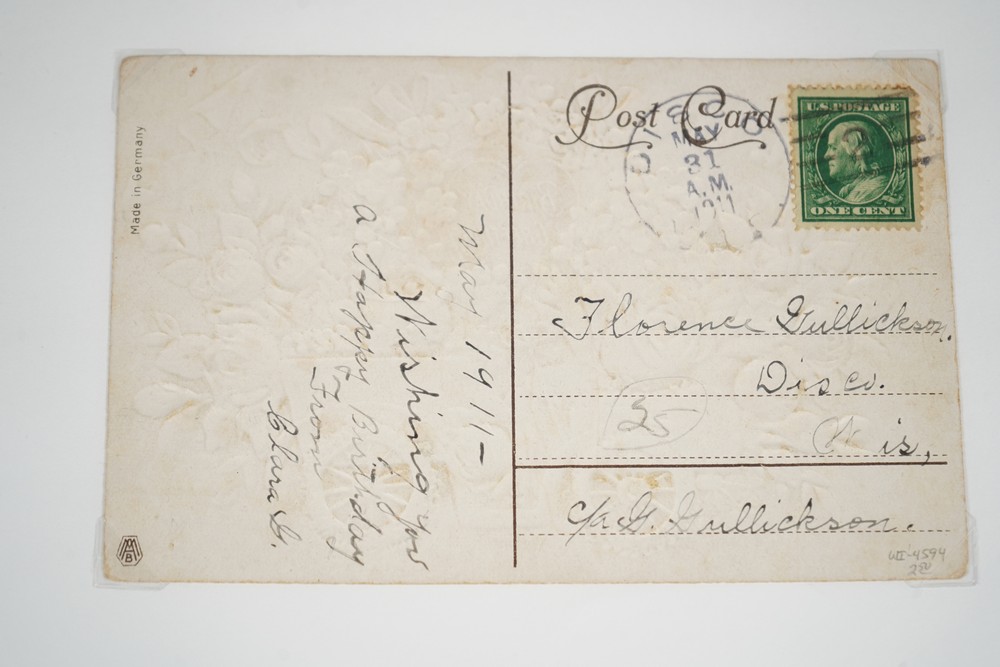 Made in Germany
May 1911 -
Wishing you
a Happy Birthday
From
Clara G.
Post Card
DISCO
MAY
31
A.M.
1911
U.S. POSTAGE
ONE CENT
Florence Gullickson,
Disco.
Wis,
c/o G. Gullickson.
25
WII-4594